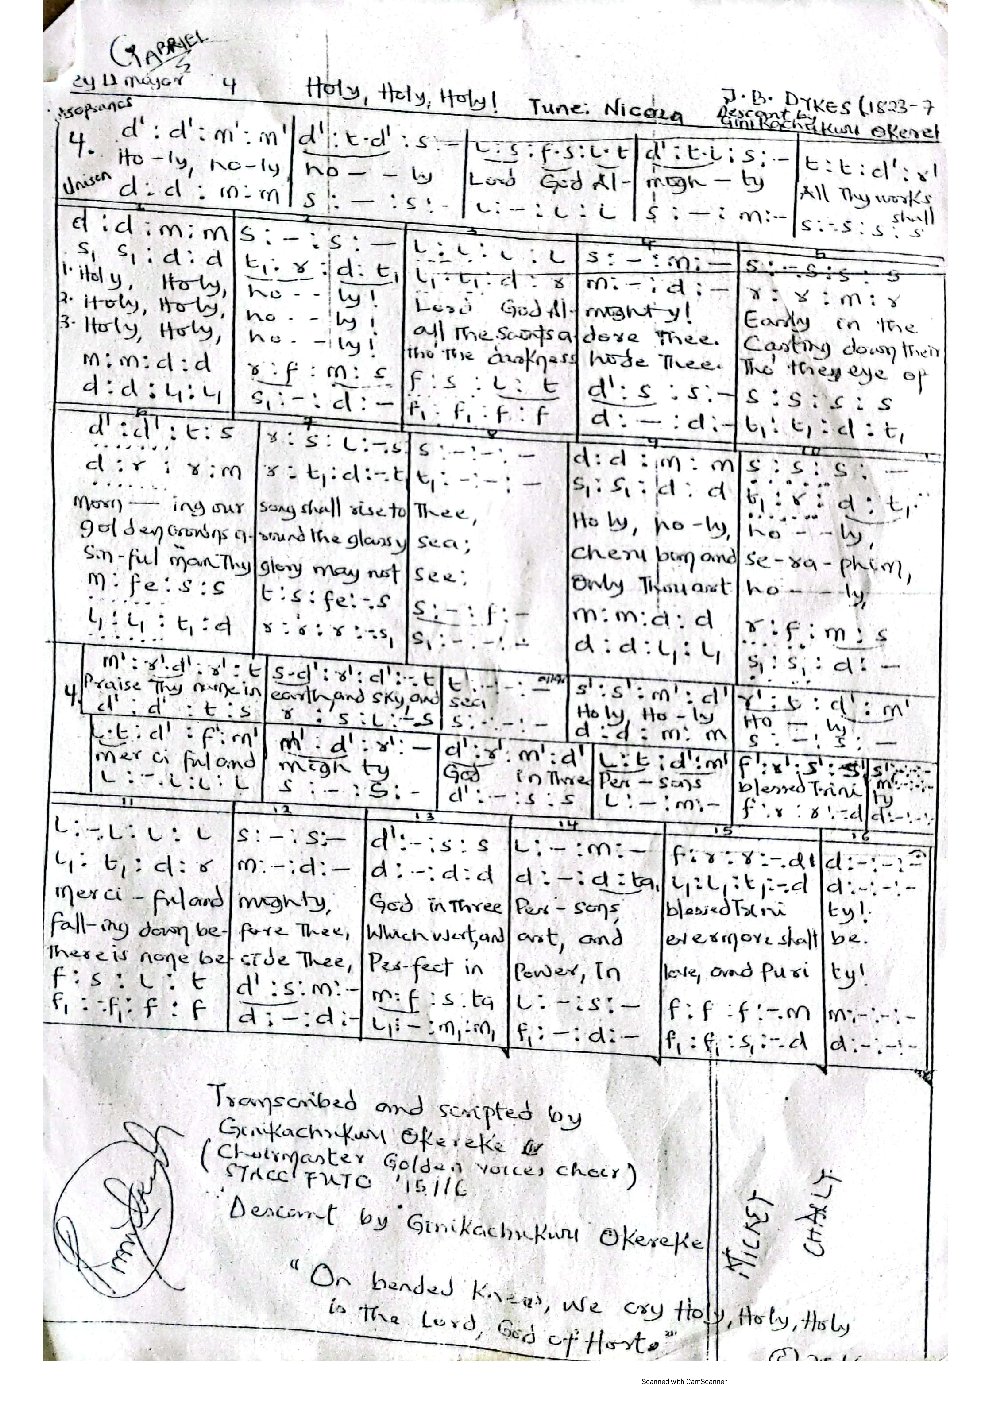 GABRIEL
4 Holy, Holy, Holy! Tune: Nicaea J. B. DYKES (1823-7
Descant by
Ginikachukwu Okerek
4. d' : d' : m' : m' | d' : t . d' : s : - | L : s : f . s : L . t | d' : t . L : s : - | t : t : d' : r'
Ho-ly, ho-ly, | ho - - ly | Lord God Al- | migh - ty | All Thy works shall
Unison d : d : m : m | s : - : s : - | L : - : L : L | s : - : m : - | s : - s : s : s
1 2 3 4 5
d : d : m : m | s : - : s : - | L : L : L : L | s : - : m : - | s : - . s : s : s
s₁ s₁ : d : d | t₁ : r : d : t₁ | L₁ : t₁ : d : r | m : - : d : - | r : r : m : r
1. Holy, Holy, | ho - - ly! | Lord God Al- | mighty! | Early in the
2. Holy, Holy, | ho - - ly! | all the saints a- | dore Thee. | Casting down their
3. Holy, Holy, | ho - - ly! | tho' the darkness | hide Thee. | Tho' they eye of
m : m : d : d | r : f : m : s | f : s : L : t | d' : s : s : - | s : s : s : s
d : d : L₁ : L₁ | s₁ : - : d : - | f₁ : f₁ : f : f | d : - : d : - | t₁ : t₁ : d : t₁
6 7 8 9 10
d' : d' : t : s | r : s : L : - . s | s : - : - : - | d : d : m : m | s : s : s : -
d : r : r : m | r : t₁ : d : - . t₁ | t₁ : - : - : - | s₁ : s₁ : d : d | t₁ : r : d : t₁
Morn - ing our | song shall rise to | Thee, | Holy, ho-ly, | ho - - ly,
golden crowns a- | round the glassy | sea; | cherubim and | se-ra-phim,
Sin-ful man Thy | glory may not | see; | Only Thou art | ho - - ly,
m : fe : s : s | t : s : fe : - . s | s : - : f : - | m : m : d : d | r : f : m : s
L₁ : L₁ : t₁ : d | r : r : r : - . s₁ | s₁ : - : - : - | d : d : L₁ : L₁ | s₁ : s₁ : d : -
4. m' : r' . d' : r' : t | s . d' : r' : d' : t | t : - : - : - | s' : s' : m' : d' | r' : t : d' : m'
Praise Thy name in | earth, and sky, and | sea | Holy, Ho-ly | Ho - ly
d' : d' : t : s | r : s : L : - . s | s : - : - : - | d : d : m : m | s : - : s : -
L . t : d' : f' : m' | m' : d' : r' : - | d' : r' : m' : d' | L : t : d' : m' | f' : r' : s' : s'
merciful and | migh ty | God in three | Per-sons | blessed Trini | ty
L : - . L : L : L | s : - : s : - | d' : - : s : s | L : - : m : - | f : r : r : - d | d : - : - : -
11 12 13 14 15 16
L : - . L : L : L | s : - : s : - | d' : - : s : s | L : - : m : - | f : r : r : - . d | d : - : - : -
L₁ : t₁ : d : r | m : - : d : - | d : - : d : d | d : - : d : ta₁ | L₁ : L₁ : t₁ : - . d | d : - : - : -
Merci-ful and | mighty, | God in three | Per-sons, | blessed Trini | ty!
fall-ing down be- | fore Thee, | Which wert, and | art, and | evermore shalt | be.
there is none be- | side Thee, | Per-fect in | Power, In | love, and Puri | ty!
f : s : L : t | d' : s : m : - | m : f : s : ta | L : - : s : - | f : f : f : - . m | m : - : - : -
f₁ : - . f₁ : f : f | d : - : d : - | L₁ : - : m₁ : m₁ | f₁ : - : d : - | f₁ : f₁ : s₁ : - . d | d : - : - : -
Transcribed and scripted by
Ginikachukwu Okereke
(Choirmaster Golden voices choir)
STACC FUTO '15/16
Descant by Ginikachukwu Okereke
MICKEY
CHARLY
"On bended Knees, we cry Holy, Holy, Holy
is the Lord, God of Hosts"
Scanned with CamScanner